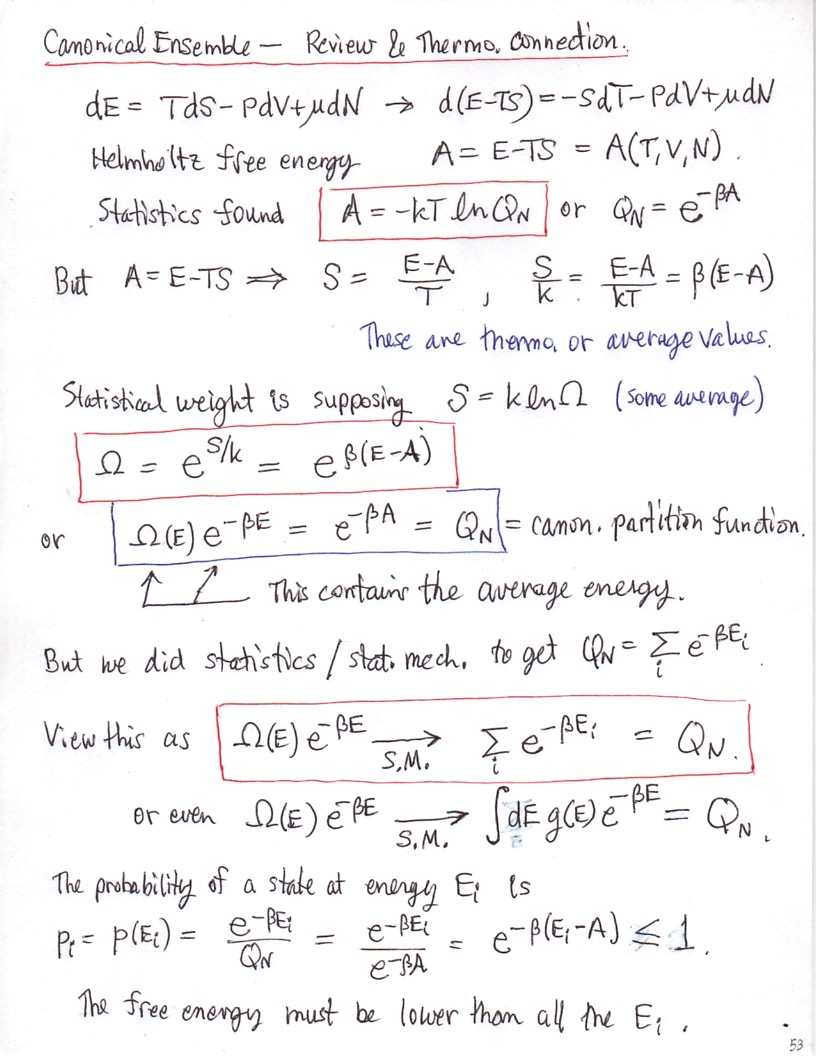 Canonical Ensemble — Review & Thermo. Connection.
dE = TdS - PdV + μdN → d(E-TS) = -SdT - PdV + μdN
Helmholtz free energy A = E-TS = A(T,V,N).
Statistics found A = -kT ln Q_N or Q_N = e^{-βA}
But A = E-TS ⟹ S = (E-A)/T , S/k = (E-A)/kT = β(E-A)
These are thermo. or average values.
Statistical weight is supposing S = k ln Ω (some average)
Ω = e^{S/k} = e^{β(E-A)}
or Ω(E) e^{-βE} = e^{-βA} = Q_N = canon. partition function.
This contains the average energy.
But we did statistics / stat. mech. to get Q_N = Σ_i e^{-βE_i}
View this as Ω(E) e^{-βE} →_{S.M.} Σ_i e^{-βE_i} = Q_N.
or even Ω(E) e^{-βE} →_{S.M.} ∫dE g(E) e^{-βE} = Q_N.
The probability of a state at energy E_i is
p_i = p(E_i) = e^{-βE_i}/Q_N = e^{-βE_i}/e^{-βA} = e^{-β(E_i-A)} ≤ 1.
The free energy must be lower than all the E_i.
53